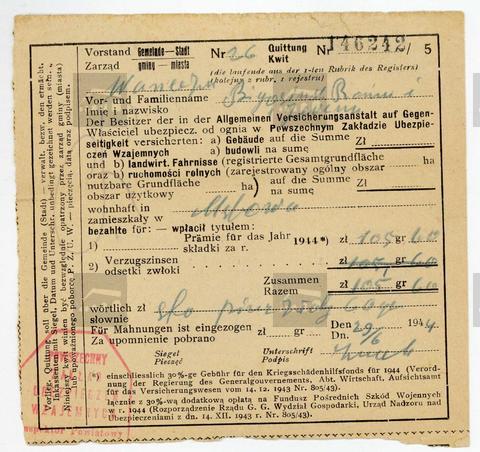 Vorstand Gemeinde-Stadt Nr 26 Quittung № 146242/5
Zarząd gminy-miasta Kwit
(die laufende aus der 1-ten Rubrik des Registers)
(kolejny z rubr. 1 rejestru)
Vor- und Familienname
Imię i nazwisko
Der Besitzer der in der Allgemeinen Versicherungsanstalt auf Gegen-
Właściciel ubezpiecz. od ognia w Powszechnym Zakładzie Ubezpie-
seitigkeit versicherten: a) Gebäude auf die Summe Zł
czeń Wzajemnych a) budowli na sumę
und b) landwirt. Fahrnisse (registrierte Gesamtgrundfläche ha
oraz b) ruchomości rolnych (zarejestrowany ogólny obszar
nutzbare Grundfläche ha) auf die Summe Zł
obszar użytkowy na sumę
wohnhaft in
zamieszkały w
bezahlte für: — wpłacił tytułem:
1) Prämie für das Jahr 1944*) zł 105 gr 60
składki za r.
2) Verzugszinsen zł 105 gr 60
odsetki zwłoki
Zusammen zł 105 gr 60
Razem
wörtlich zł sto
słownie
Für Mahnungen ist eingezogen zł gr Den 29/6 1944
Za upomnienie pobrano Dn.
Siegel Unterschrift
Pieczęć Podpis
*) einschliesslich 30%-ige Gebühr für den Kriegsschädenhilfsfonds für 1944 (Verord-
nung der Regierung des Generalgouvernements, Abt. Wirtschaft, Aufsichtsamt
für das Versicherungswesen vom 14. 12. 1943 Nr. 805/43).
łącznie z 30%-wą dodatkową opłatą na Fundusz Pośrednich Szkód Wojennych
w r. 1944 (Rozporządzenie Rządu G. G. Wydział Gospodarki, Urząd Nadzoru nad
Ubezpieczeniami z dn. 14. XII. 1943 r. Nr. 805/43).
Vorlieg. Quittung soll über die Gemeinde (Stadt) — verwalt. bezw. den ermächt.
Inkassenten mit Siegel, Datum und Unterscht. unbedingt gezeichnet werden
Niniejszy kwit winien być bezwzględnie opatrzony przez zarząd gminy (miasta)
lub upoważnionego poborcę P. Z. U. W. — pieczęcią, datą oraz podpisem.
POWSZECHNY
ZAKŁAD
UBEZPIECZEŃ
WZAJEMNYCH
Inspektor Powiatowy